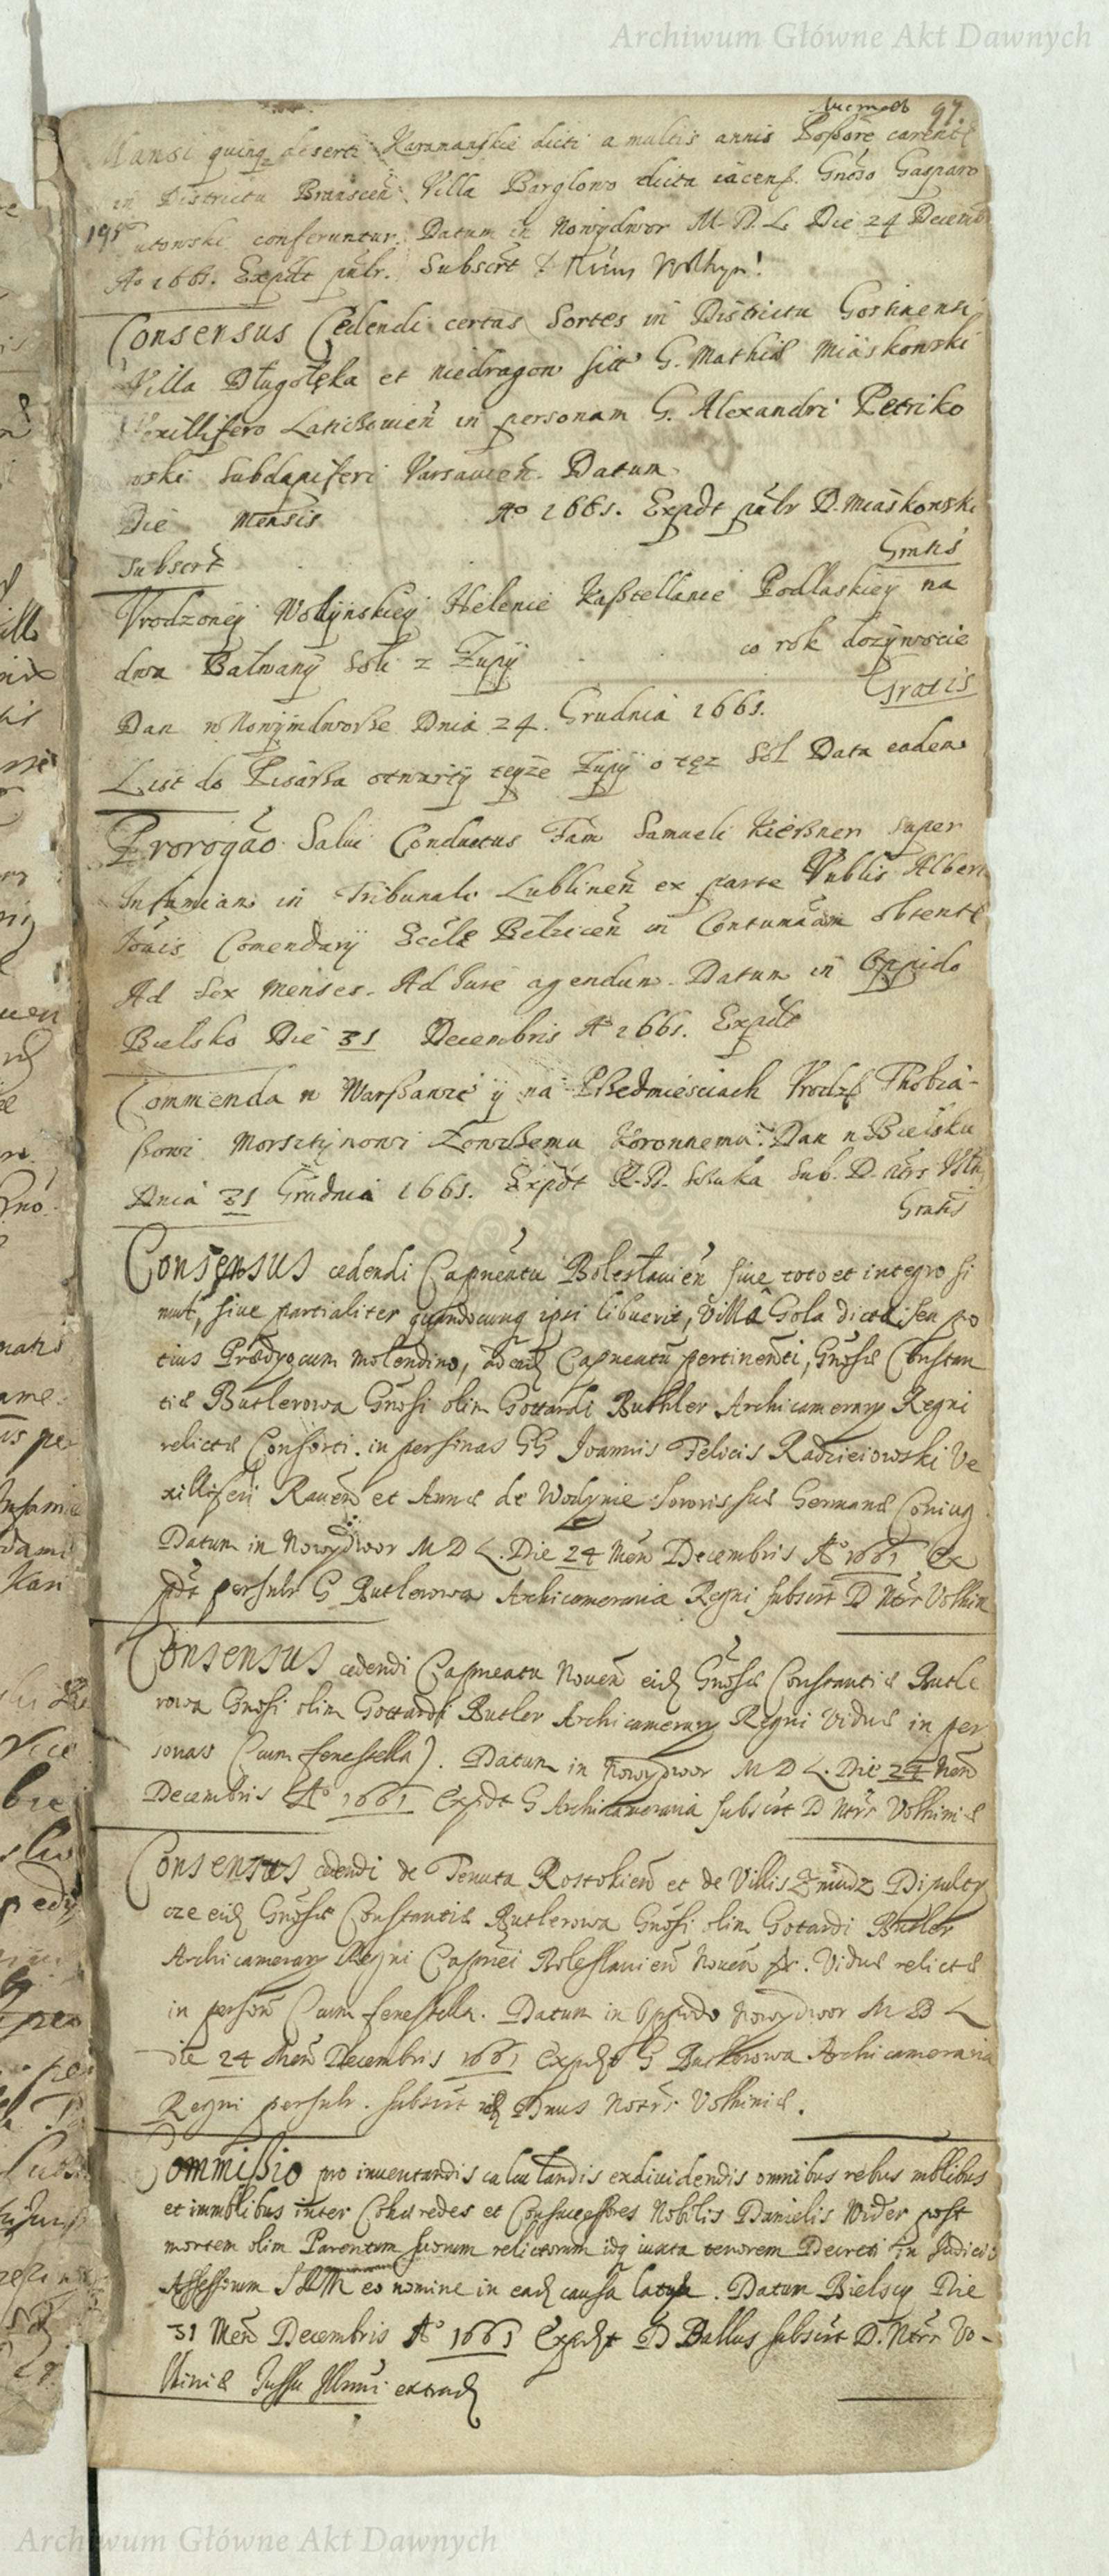 Archiwum Główne Akt Dawnych
97
Mansi quinq deserti Karamanskie dicti a multis annis Possore carente
in Districtu Branscen Villa Barglowo dicta iacens. Gnoso Gasparo
utowski conferuntur. Datum in Nowydwor M. D. L. Die 24 Decemb
Ao 1661. Expdt pulr. Subscrt
Consensus Cedendi certas Sortes in Districtu Gostinensi
Villa Długołęka et Niedragon sitt G. Mathiæ Miaskowski
Vexillifero Laticzouien in personam G. Alexandri Petriko
wski Subdapiferi Varsauien. Datum
Die Mensis Ao 1661. Expdt pulr D. Miaskowski
Subscrt Gratis
Vrodzoney Wodynskiey Helenie Kasztellanie Podlaskiey na
dwa Bałwany Soli z Zupy co rok dozywocie
Gratis
Dan w Nowymdworze Dnia 24. Grudnia 1661.
List do Pisarza otwarty teyze Zupy o tęz Sol Data eadem
Prorogao Salui Conductus Fam Samueli Kierszner super
Infamiam in Tribunali Lublinen ex parte Vnblis Alber
Ioais Comendarij Eccle Belzicen in Contumaciam obtente
Ad Sex Menses. Ad Iure agendum. Datum in Oppido
Bielsko Die 31 Decembris Ao 1661. Expdt
Commenda w Warszawie y na Przedmiesciach Vrodz Thobia-
szowi Morsztynowi Łowczemu Koronnemu. Dan w Bielsku
Dnia 31 Grudnia 1661. Expdt R. D. Sub. D. Ntrs Vlh
Gratis
Consensus cedendi Capneatu Bolesłauien siue toto et integro si
mul, siue partialiter quandocunq ipsi libuerit, Villa Gola dicta seu po
tius Prædyocum molendino, ad eund Capneatu pertinenti, Gnosæ Constan
tiæ Butlerowa Gnosi olim Gottardi Buthler Archicamerary Regni
relictæ Consorti. in personas GG Joannis Felicis Radzieiowski Ve
xilliferi Rauen et Annæ de Wodynie Sororis suæ Germanæ Coniug.
Datum in Nowydwor M D L. Die 24 Men Decembris Ao 1661 Ex
pdt persulr G Butlerowa Archicameraria Regni subscrt D Ntrs Volhin
Consensus cedendi Capneatu Nouen eid Gnosæ Constantiæ Butle
rowa Gnosi olim Gottardi Butler Archicamerary Regni Viduæ in per
sonas (Cum fenestella). Datum in Nowydwor M D L. Die 24 Men
Decembris Ao 1661 Expdt G Archicameraria subscrt D Ntrs Volhiniæ
Consensus cedendi de Tenuta Rostokien et de Villis Zmudz Dipulty
cze eid Gnosæ Constantiæ Butlerowa Gnosi olim Gotardi Butler
Archicamerary Regni Capnei Boleslauien Nouen &c. Viduæ relictæ
in person Cum fenestella. Datum in Oppido Nowydwor M D L
die 24 Men Decembris 1661 Expdt G Butlerowa Archicameraria
Regni persulr. subscrt id Dnus Notrs Volhiniæ.
Commissio pro inuentandis calculandis exdiuidendis omnibus rebus mblibus
et immblibus inter Cohæredes et Consuccessores Nobilis Danielis Wider post
mortem olim Parentum suorum relictorum idq iuxta tenorem Decreti in Judicio
Assessorum SRM eo nomine in ead causa latum. Datum Bielscy Die
31 Men Decembris Ao 1661 Expdt D Ballus subscrt D. Ntrs Vo-
lhiniæ Jussu Illmi extrad
Archiwum Główne Akt Dawnych